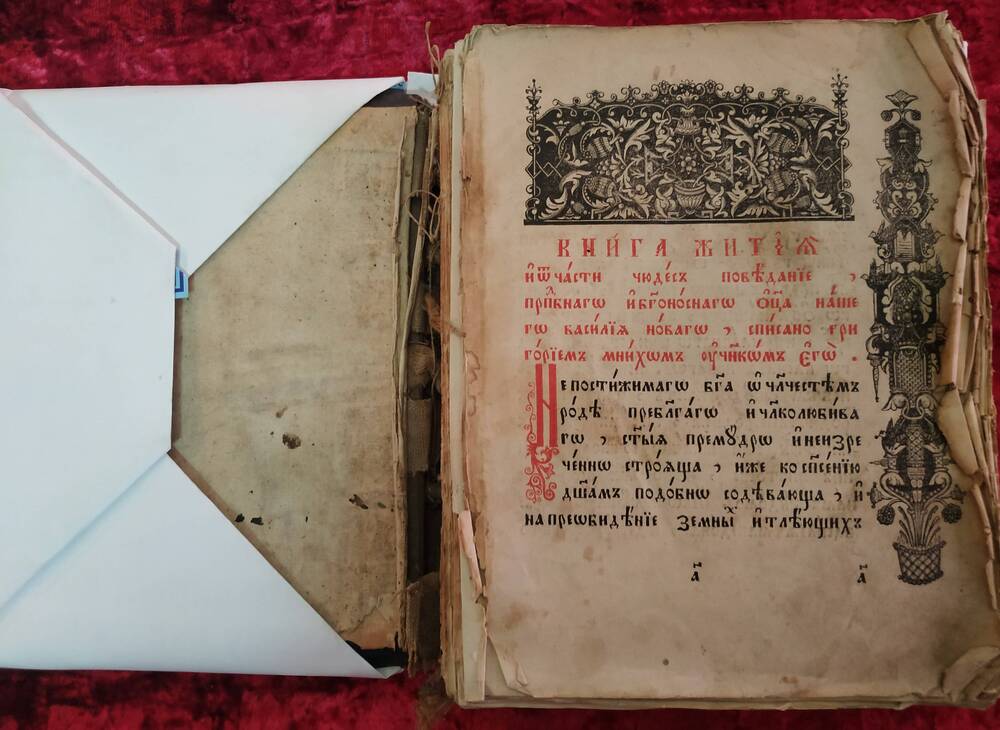 КНИ́ГА ЖИТІѦ̀
и҆ ѿча́сти чꙋде́съ повѣ́данїе ,
прⷣпбнагѡ и҆ бг҃оно́снагѡ ѻ҆ц҃а на́ше
гѡ васи́лїѧ но́вагѡ , спи́сано гри
го́рїемъ мни́хомъ ᲂу҆чн҃ко́мъ є҆гѡ̀ .
Непости́жимагѡ бг҃а ѡ҆ чл҃честѣмъ
ро́дѣ пребл҃га́гѡ и҆ чл҃колюби́ва
гѡ , ст҃ы́ѧ премꙋ́дрѡ и҆ неизре
че́ннѡ строѧ́ща , и҆́же ко сп҃се́нїю
дш҃а́мъ подо́бнѡ содѣва́юща , и҆
на преѡби́дѣнїе земны́х и҆ тлѣ́ющихъ
а҃ а҃